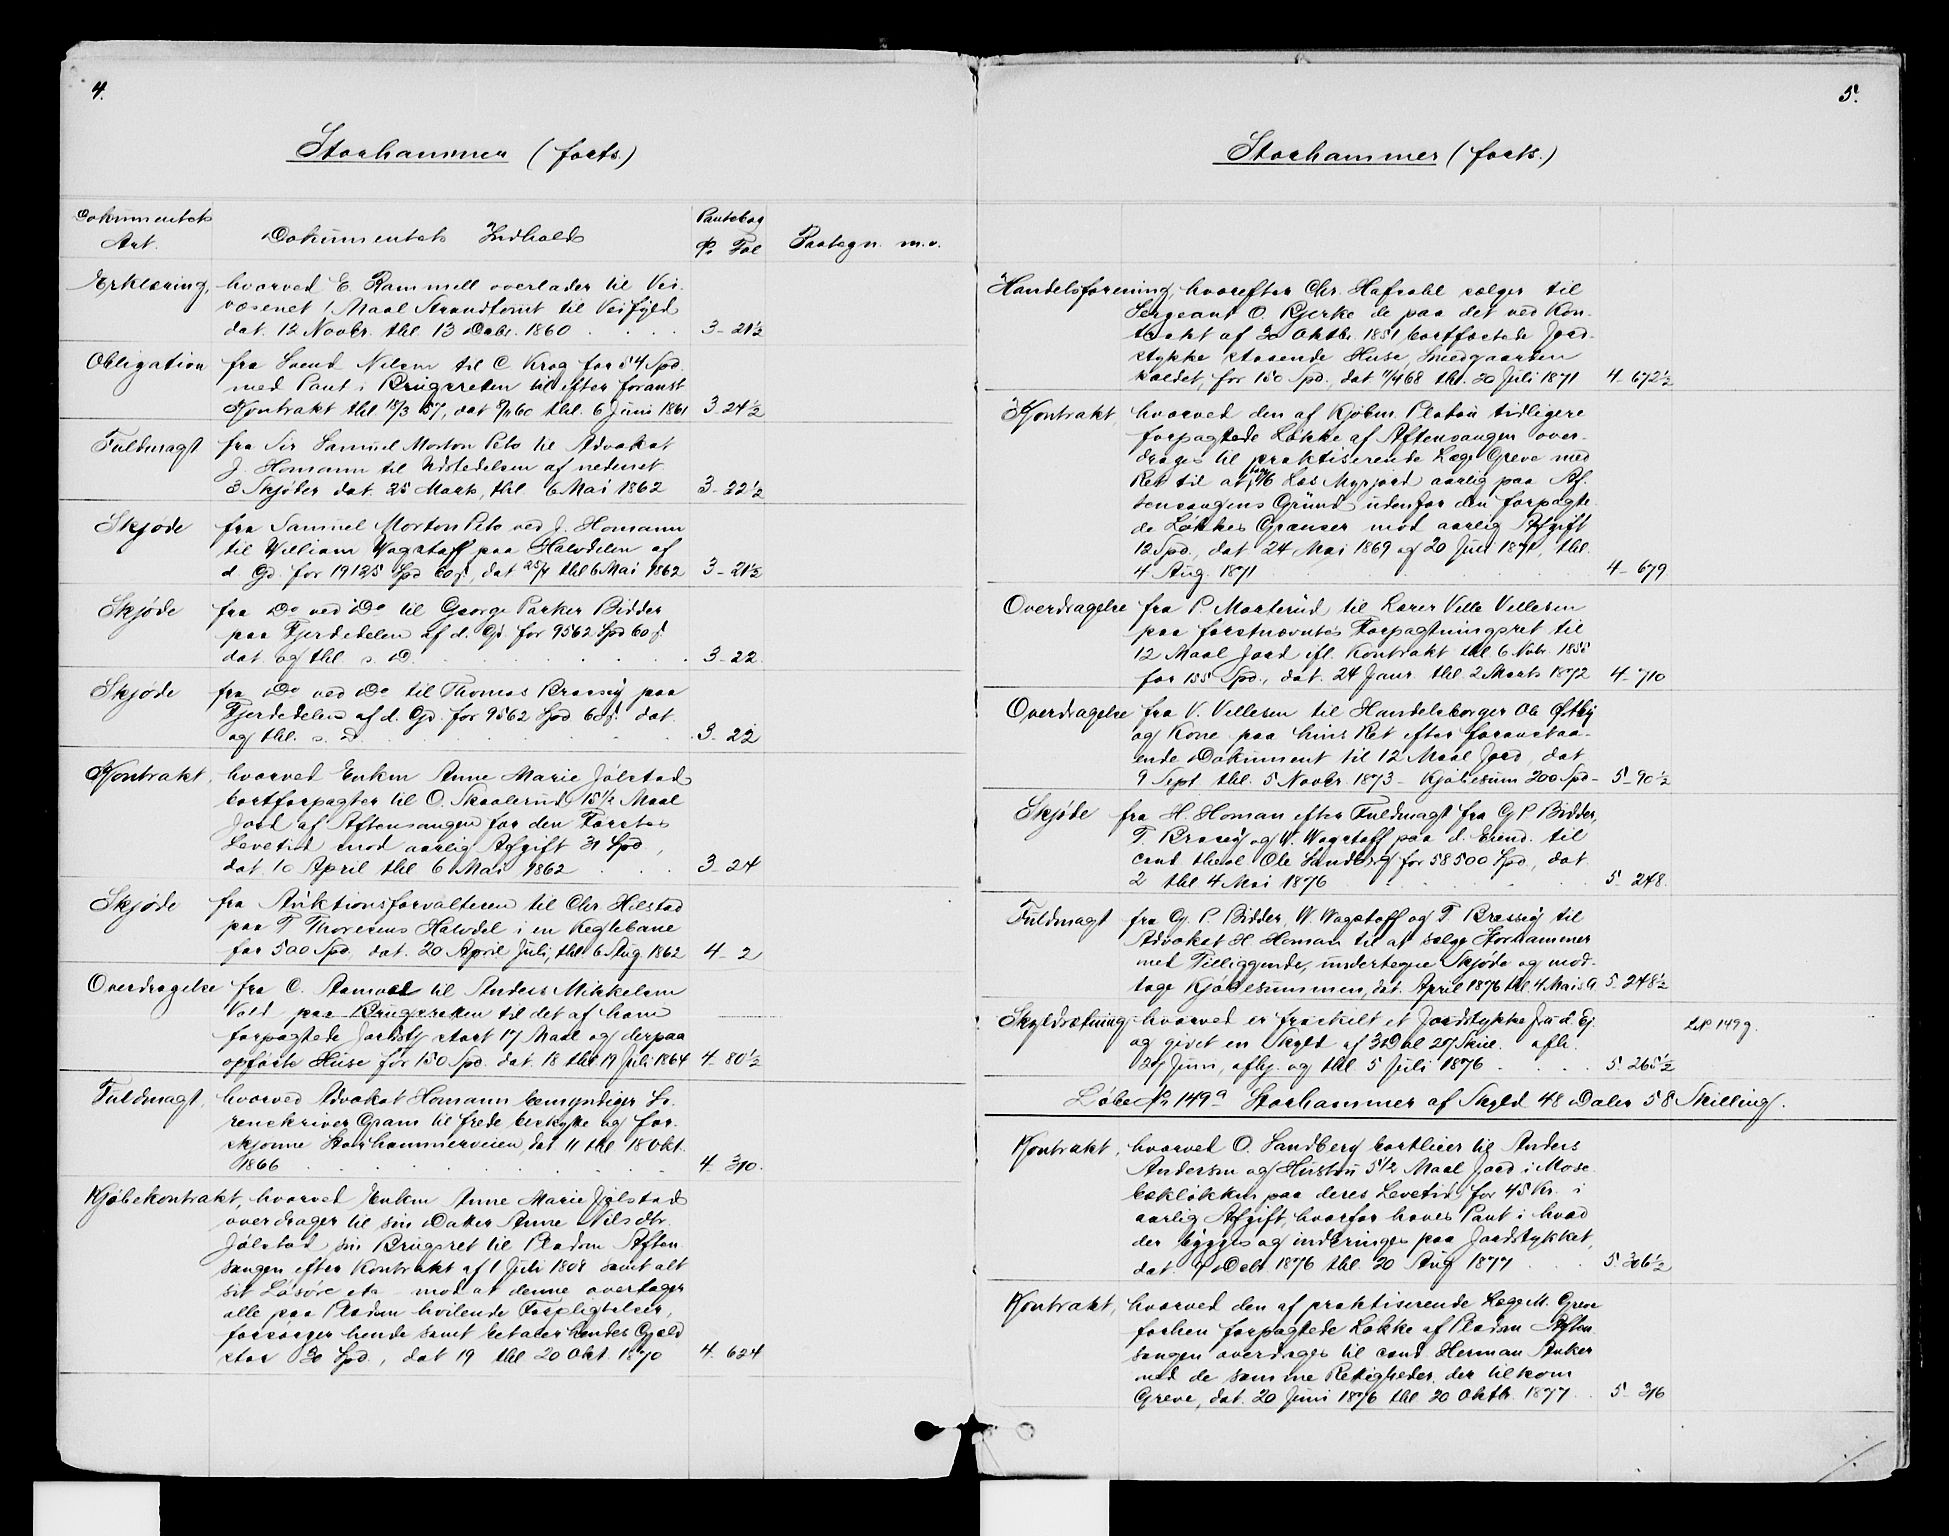 4.
Storhammer (forts.)
Dokumentets Art. Dokumentets Indhold Pantebog Pr Fol Paategn. m.v.
Erklæring, hvorved E. Rammell overlader til Vei-
væsenet 1 Maal Strandtomt til Veifyld
dat. 12 Novbr. thl. 13 Decbr. 1860 3-21½
Obligation fra Svend Nilsen til C Krog for 54 Spd.
med Pant i Brugsretten til efter foranst
Kontrakt thl 18/3 57, dat 60 thl. 6 Juni 1861 3-24½
Fuldmagt fra Sir Samuel Morton Peto til Advokat
J. Homann til Udstedelsen af nedenst.
3 Skjøder dat. 25 Marts, thl. 6 Mai 1862 3-22½
Skjøde fra Samuel Morton Peto ved J. Homann
til William Wagstaff paa Halvdelen af
d. Gd. for 19125 Spd 60 ſ., dat 25/4 thl 6 Mai 1862 3-21½
Skjøde fra Do ved Do til George Parker Bidder
paa Fjerdedelen af d. Gd. for 9562 Spd 60 ſ.
dat og thl. s. D. 3-22.
Skjøde fra Do ved Do til Thomas Brassey paa
Fjerdedelen af d. Gd. for 9562 Spd 60 ſ. dat.
og thl. s. D. 3-22
Kontrakt, hvorved Enken Anne Marie Jølstad
bortforpagter til O. Skaalerud 15½ Maal
Jord af Aftensangen for den Førstes
Levetid mod aarlig Afgift 31 Spd.,
dat 10 April thl 6 Mai 1862 3-24
Skjøde fra Auktionsforvalteren til Chr Hilstad
paa T Thoresens Halvdel i en Keglebane
for 500 Spd, dat. 20 April Juli, thl 6 Aug 1862 4-2
Overdragelse fra C. Aamodt til Anders Mikkelsen
Vold paa Brugsretten til det af ham
forpagtede Jordsty stort 17 Maal og derpaa
opførte Huse for 150 Spd. dat. 18 thl 19 Juli 1864 4-80½
Fuldmagt, hvorved Advokat Homann bemyndiger So-
renskriver Gram til frede beskytte og for-
skjønne Storhammerveien, dat 11 thl 18 Okt.
1866 4. 310.
Kjøbekontrakt, hvorved Enken Anne Marie Jølstad
overdrager til sin Datter Anne Nilsdtr.
Jølstad sin Brugsret til Pladsen Aften
sangen efter Kontrakt af 1 Juli 1808 samt alt
sit Løsøre eta - mod at denne overtager
alle paa Pladsen hvilende Forpligtelser,
forsørger hende samt betaler hendes Gjæld
stor 30 Spd., dat 19 thl 20 Okt. 1870 4. 624
5.
Storhammer (forts.)
Handelsforening, hvorefter Chr. Hafsahl sælger til
Sergeant O. Gjerke de paa det ved Kon-
trakt af 30 Oktbr. 1851 bortfæstede Jord-
stykke staaende Huse, Smedgaarden
kaldet, for 150 Spd., dat 11/4 68 thl. 20 Juli 1871 4-672½
Kontrakt, hvorved den af Kjøbm. Platou tidligere
forpagtede Løkke af Aftensangen over-
drages til praktiserende Læge Greve med
Ret til at tage 76 Læs Myrjord aarlig paa Af-
tensangens Grund udenfor den forpagte-
de Løkkes Grændser mod aarlig Afgift
12 Spd., dat 24 Mai 1869 og 20 Juli 1871, thl.
4 Aug. 1871 4-679
Overdragelse fra P. Maaterud til Lærer Ville Villesen
paa førstnævntes Forpagtningsret til
12 Maal Jord ifl. Kontrakt thl 6 Nvbr. 1855
for 155 Spd., dat. 24 Janr. thl. 2 Marts 1872 4-710
Overdragelse fra V. Villesen til Handelsborger Ole Østby
og Kone paa hins Ret efter foranstaa-
ende Dokument til 12 Maal Jord, dat.
9 Sept. thl. 5 Novbr. 1873 - Kjøbesum 200 Spd - 5-90½
Skjøde fra H. Homan efter Fuldmagt fra G. P. Bidder,
T. Brassey og W. Wagstaff paa d. Eiend. til
cand. theol Ole Sandberg for 58500 Spd., dat
2 thl 4 Mai 1876 5-248.
Fuldmagt fra G. P. Bidder, W. Wagstaff og T. Brassey til
Advokat H. Homan til at sælge Storhammer
med Tilliggende, undertegne Skjøde og mod-
tage Kjøbesummen, dat. April 1876 thl. 4 Mai s. A. 5-248½
Skyldsætning, hvorved er fraskilt et Jordstykke fra d. Ej.
og givet en Skyld af 3 Dal 27 Skill. afh.
24 Juni, afhj. og thl. 5 Juli 1876 5. 265½ LN 149 g.
Løbe No 149a Storhammer af Skyld 48 Daler 58 Skilling.
Kontrakt, hvorved O. Sandberg bortleier til Anders
Andersen og Hustru 5½ Maal Jord i Mose-
bækløkken paa deres Levetid for 45 Kr. i
aarlig Afgift, hvorfor haves Pant i hvad
der bygges og indbringes paa Jordstykket,
dat. 7 Debr 1876 thl. 20 Aug 1877 5. 306½
Kontrakt, hvorved den af praktiserende Læge M. Greve
forhen forpagtede Løkke af Pladsen Aften-
sangen overdrages til cand. Herman Anker
med de samme Rettigheder, der tilkom
Greve, dat. 20 Juni 1876 thl 20 Oktbr. 1877 5-316